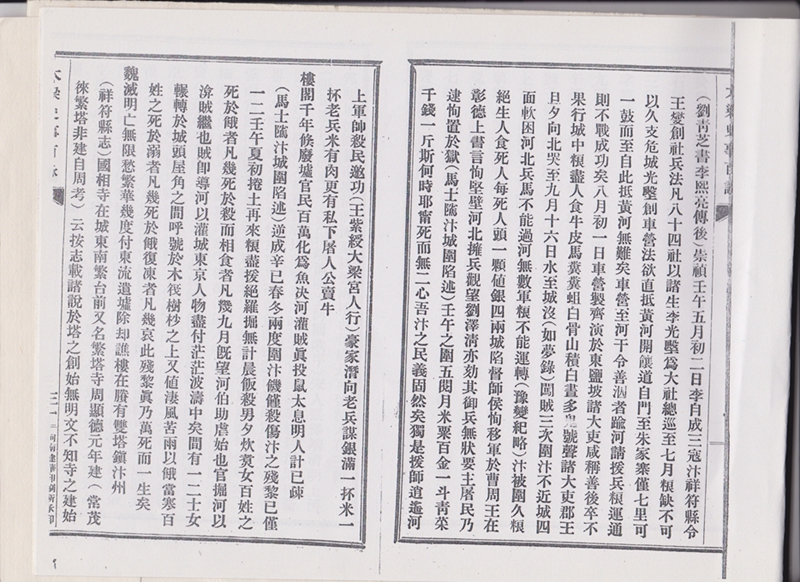 （劉靑芝書李熙亮傳後）崇禎壬午五月初二日李自成三寇汴祥符縣令
王燮創社兵法凡八十四社以諸生李光壂爲大社總巡至七月糧缺不可
以久支危城光壂創車營法欲直抵黃河開餉道自門至朱家寨僅七里可
一鼓而至自此抵黃河無難矣車營至河干令善泅者踰河請援兵糧運通
則不戰成功矣八月初一日車營製齊演於東鹽坡諸大吏咸稱善後卒不
果行城中糧盡人食牛皮馬糞糞蛆白骨山積白晝多鬼號聲諸大吏郡王
旦夕向北哭至九月十六日水至城沒（如夢錄）闖賊三次圍汴不近城四
面軟困河北兵馬不能過河無數軍糧不能運轉（豫變紀略）汴被圍久糧
絕生人食死人每死人頭一顆値銀四兩城陷督師侯恂移軍於曹周王在
彰德上書言恂堅壁河北擁兵觀望劉澤淸亦劾其御兵無狀要王屠民乃
逮恂置於獄（馬士隲汴城圍陷述）壬午之圍五閱月米粟百金一斗靑菜
千錢一斤斯何時耶甯死而無二心吾汴之民義固然矣獨是援師逍遙河
上軍帥殺民邀功（王紫綬大梁宮人行）豪家潛向老兵謀銀滿一杯米一
杯老兵米有肉更有私下屠人公賣牛
樓閣千年候廢墟官民百萬化爲魚决河灌賊眞投鼠太息明人計已疎
（馬士隲汴城圍陷述）逆成辛巳春冬兩度圍汴饑饉殺傷汴之殘黎已僅
一二壬午夏初捲土再來糧盡援絕羅掘無計晨飯殺男夕炊㷊女百姓之
死於餓者凡幾死於殺而相食者凡幾九月旣望河伯助虐始也官掘河以
渰賊繼也賊卽導河以灌城東京人物盡付茫茫波濤中矣間有一二士女
輾轉於城頭屋角之間呼號於木筏樹杪之上又値淒風苦雨以餓當寒百
姓之死於溺者凡幾死於餓復凍者凡幾哀此殘黎眞乃萬死而一生矣
魏滅明亡無限愁繁華幾度付東流遺墟除却譙樓在賸有雙塔鎭汴州
（祥符縣志）國相寺在城東南繁台前又名繁塔寺周顯德元年建（常茂
徠繁塔非建自周考）云按志載諸說於塔之創始無明文不知寺之建始